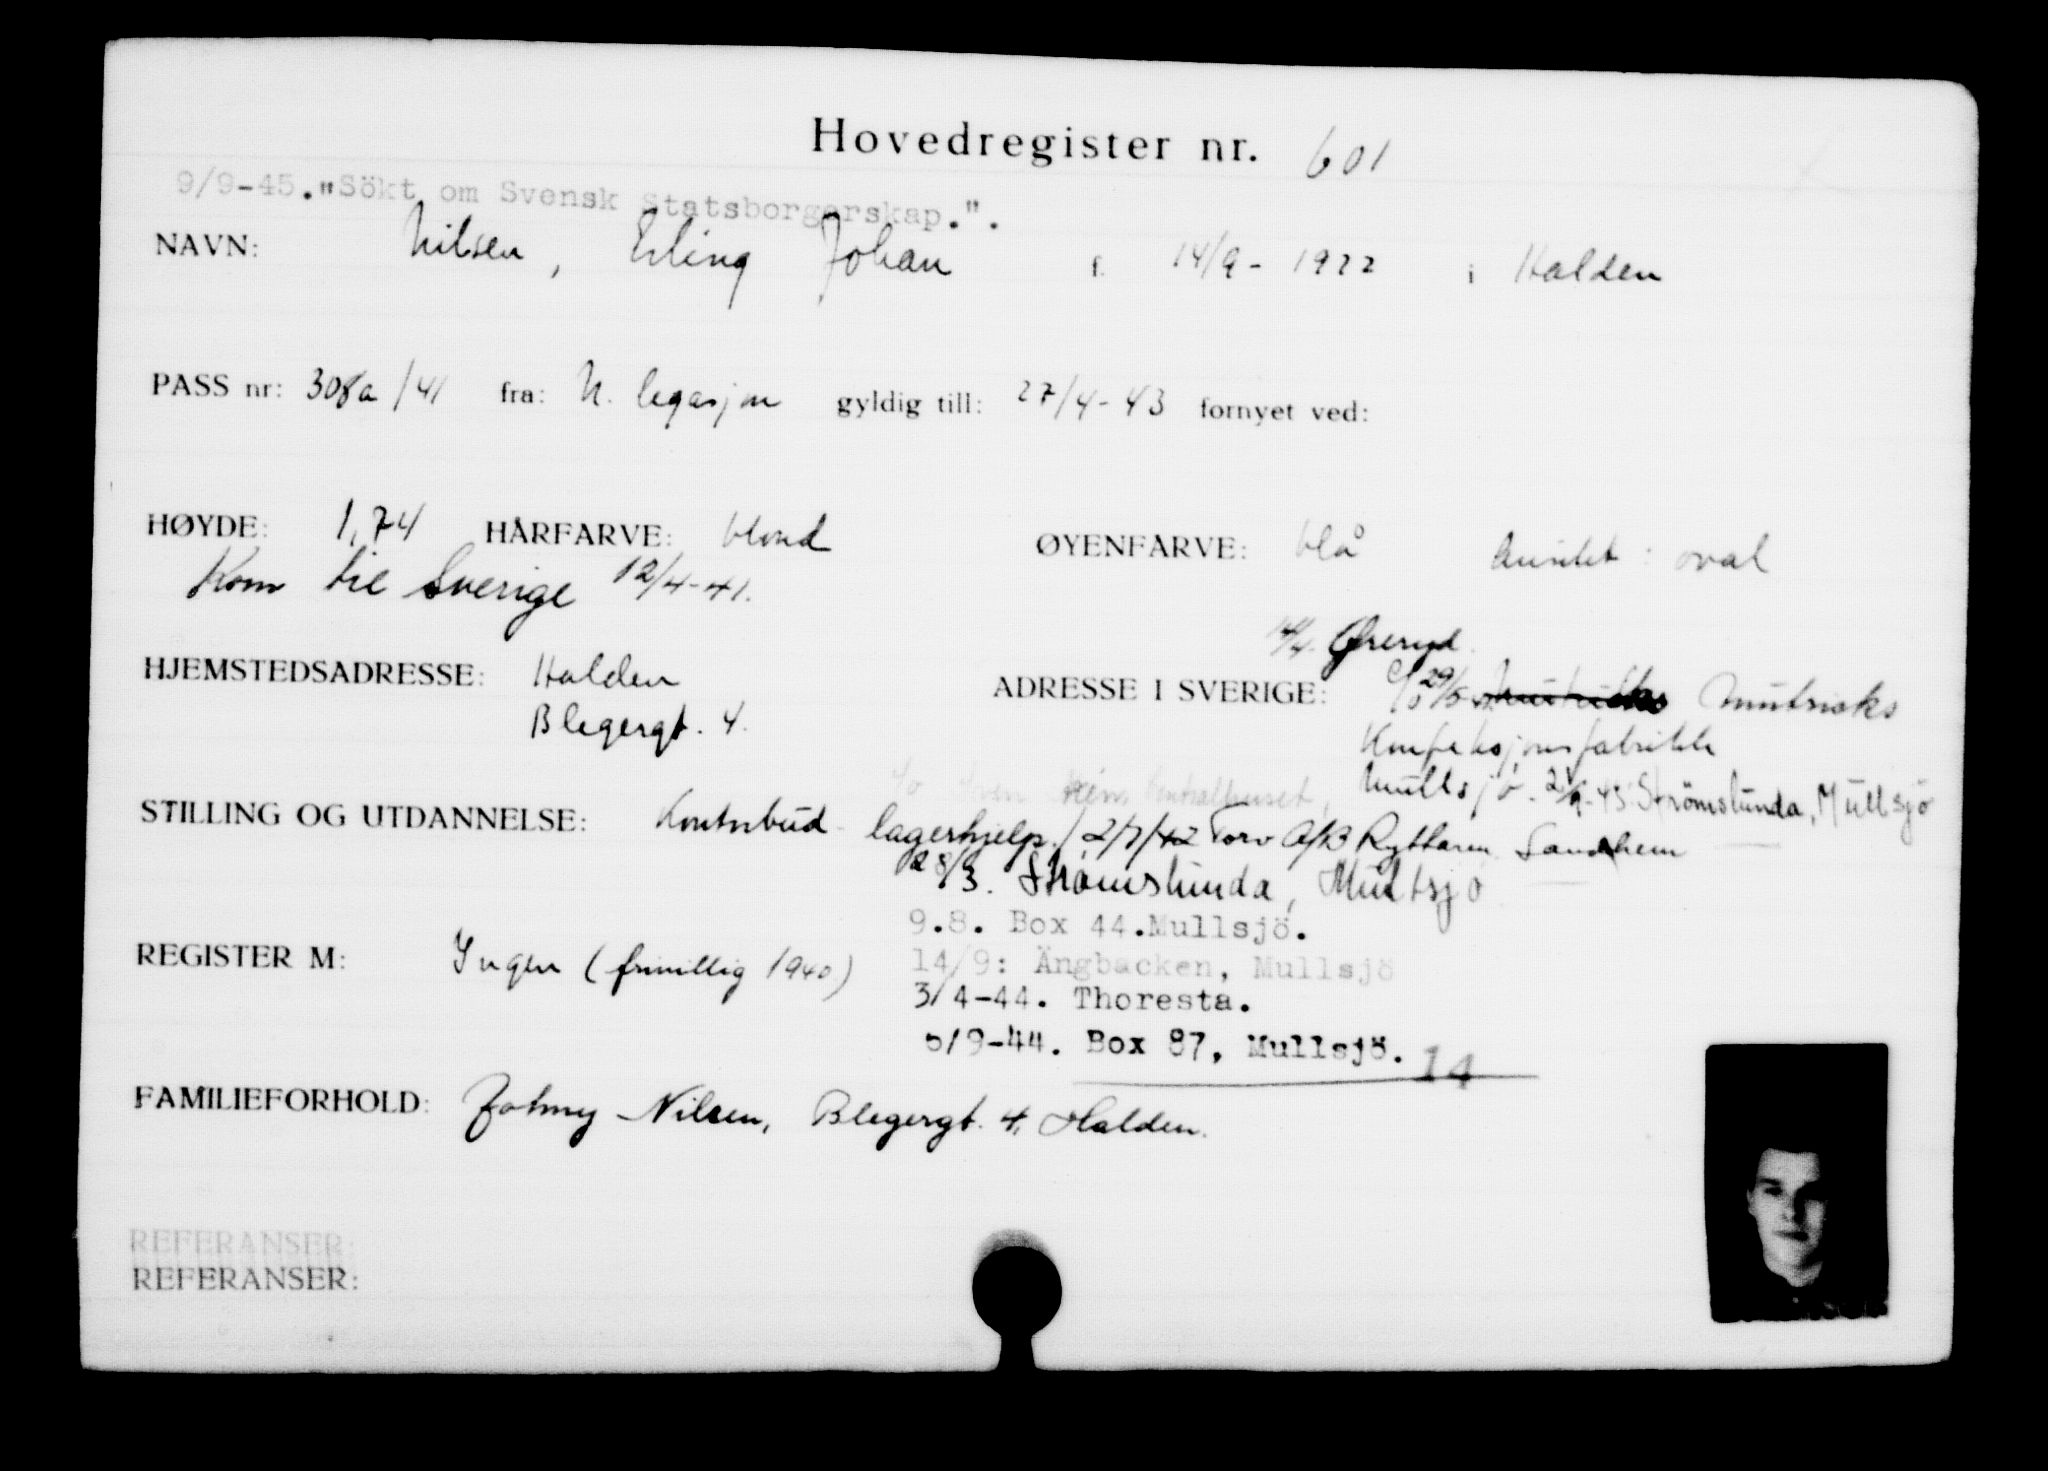 Hovedregister nr. 601
9/9-45."Sökt om Svensk Statsborgerskap.".
NAVN: Nilsen, Erling Johan f. 14/9-1922 i Halden
PASS nr: 308a/41 fra: N. legasjon gyldig till: 27/4-43 fornyet ved:
HØYDE: 1,74 HÅRFARVE: blond ØYENFARVE: blå Ansikt: oval
Kom til Sverige 12/4-41.
14/4. Øreryd.
HJEMSTEDSADRESSE: Halden ADRESSE I SVERIGE: c/o 29/5 Mutricks
Blegergt. 4. Konfeksjonsfabrikk
Mullsjö. 21/9-43 Strömslunda, Mullsjö
STILLING OG UTDANNELSE: Kontorbud - lagerhjelp. / 2/7/42 Torv A/B Ryttaren Sandhem
28/3. Strömslunda, Mullsjö
9.8. Box 44.Mullsjö.
REGISTER M: Ingen (frivillig 1940) 14/9: Ängbacken, Mullsjö
3/4-44. Thoresta.
5/9-44. Box 87, Mullsjö. 14
FAMILIEFORHOLD: Johny Nilsen, Blegergt. 4, Halden.
REFERANSER:
REFERANSER: